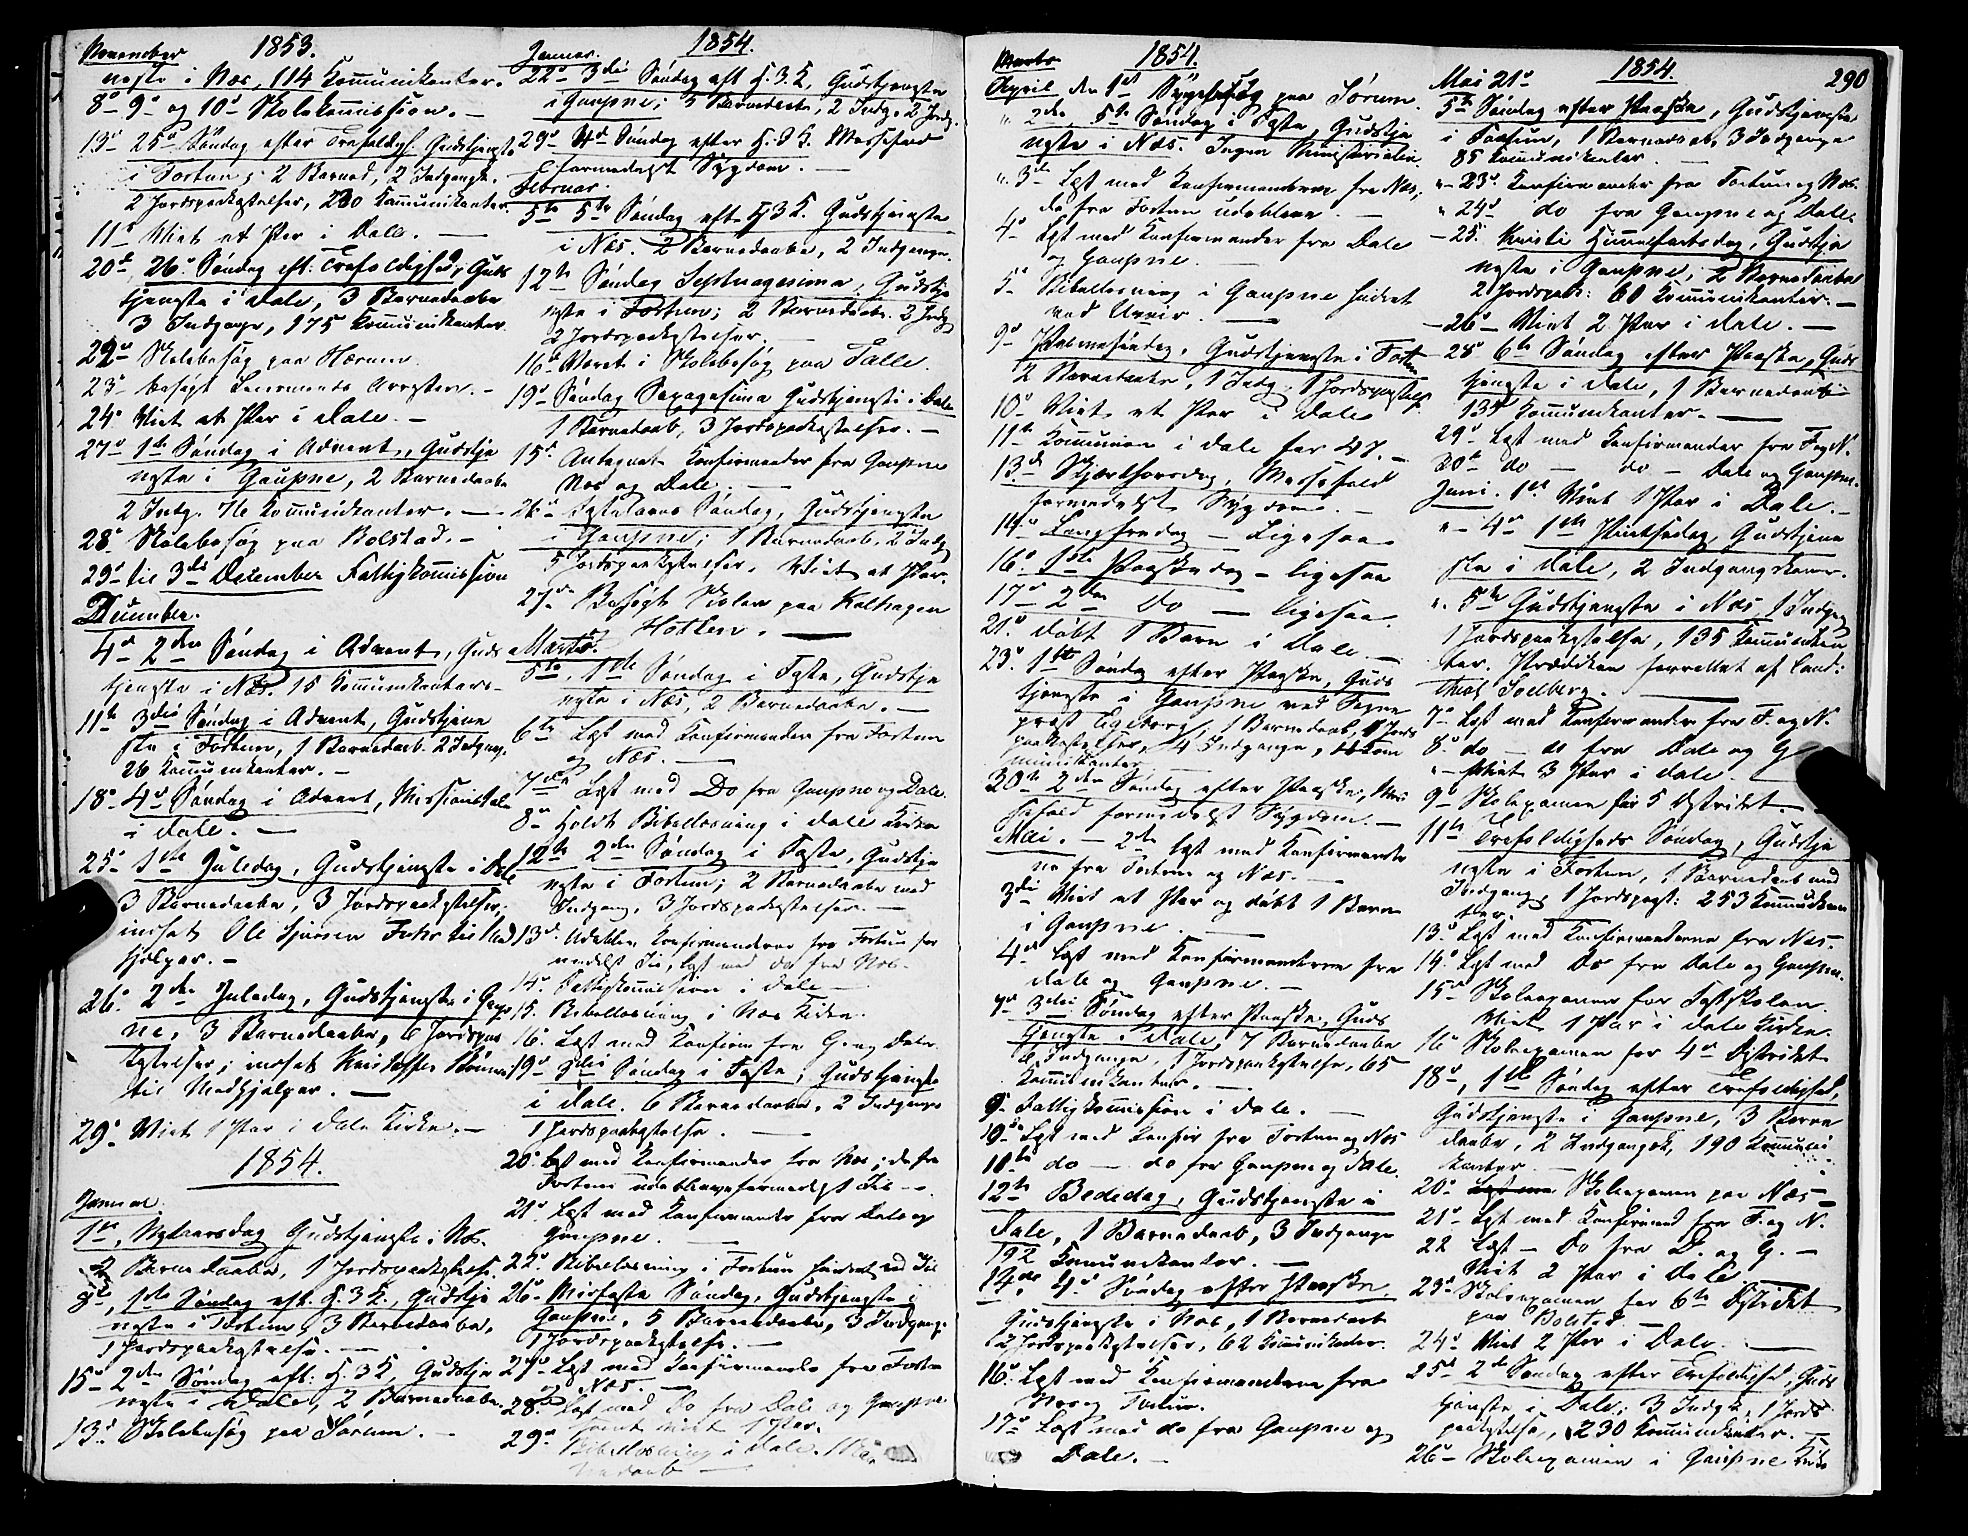 November 1853.
neste i Næs, 114 Kommunikanter.
8de 9de og 10de Skolekommission. —
13de 25de Søndag efter Trefoldigh. Gudstjeneste
i Fortun; 2 Barned, 2 Indgangk.
2 Jordspaakastelser, 230 Kommunikanter.
11te Viet et Par i Dale. —
20de 26de Søndag eft: Trefoldighed, Guds
tjeneste i Dale, 3 Barnedaabe
3 Indgange, 175 Kommunikanter
22de Skolebesøg paa Hærum.
23de besøgt Lensmands Arresten. —
24de Viet et Par i Dale. —
27de 1ste Søndag i Advent, Gudstje
neste i Gaupne, 2 Barnedaabe
2 Indg. 76 Kommunikanter. —
28de Skolebesøg paa Bolstad. —
29de til 3die December Fattigkommission
December.
4de 2den Søndag i Advent, Guds
tjeneste i Næs. 15 Kommunikanter.
11te 3die Søndag i Advent, Gudstjene
ste i Fortun, 1 Barnedaab. 2 Indgange,
26 Kommunikanter. —
18de 4de Søndag i Advent, Missionstale
i Dale. —
25de 1ste Juledag, Gudstjeneste i Dale
3 Barnedaabe, 3 Jordspaakastelser,
indsat Ole til Med
hjelper. —
26de 2den Juledag, Gudstjeneste i Gaup
ne, 3 Barnedaabe, 6 Jordspaa
kastelser; indsat Kristoffer
til Medhjælper. —
29de Viet 1 Par i Dale Kirke. —
1854.
Januar
1ste, Nytaarsdag Gudstjeneste i Næs.
Barnedaabe, 1 Jordspaakastelse.
8de, 1ste Søndag eft. H. 3 K., Gudstje
neste i Fortun, 3 Barnedaabe,
1 Jordspaakastelse. —
15de 2den Søndag eft: H. 3 K, Gudstje
neste i Dale, 2 Barnedaabe.
13de Skolebesøg paa Sørum. —
Januar. 1854.
22de 3die Søndag eft H. 3 K, Gudstjeneste
i Gaupne; 3 Barnedaab, 2 Indg. 2 Jords.
29de 4de Søndag efter H. 3 K. Messefald
formedelst Sygdom. —
Februar.
5te 5te Søndag eft H 3 K. Gudstjeneste
i Næs. 2 Barnedaabe, 2 Indgange.
12te Søndag Septuagesima, Gudstje
neste i Fortun; 2 Barnedaabe. 2 Indg
2 Jordspaakastelser.
16de Været i Skolebesøg paa Talle.
19de Søndag Sexagesima Gudstjeneste i Dale
1 Barnedaab, 3 Jordspaakastelser. —
15de Antegnet Konfirmander fra Gaupne
Næs og Dale. —
26de Fastelavns Søndag, Gudstjeneste
i Gaupne; 1 Barnedaab, 2 Indg
5 Jordspaakastelser. Viet et Par.
27de Besøgt Skolen paa Kalhagen
—
Marts.
5te 1ste Søndag i Faste, Gudstje
neste i Næs, 2 Barnedaabe. —
6te Læst med Konfirmander fra Fortun
og Næs. —
7de Læst med Do fra Gaupne og Dale.
8de Holdt Bibellæsning i Dale Kirke
12te 2den Søndag i Faste, Gudstje
neste i Fortun; 2 Barnedaabe med
Indgang, 3 Jordspaakastelser. —
13de Udeblev Konfirmanderne fra Fortun for
medelst Iis, læst med do fra Næs.
14de Fattigkommission i Dale —
15. Bibellæsning i Næs Kirke.
16. Læst med Konfirm fra G. og Dale.
19de 3die Søndag i Faste, Gudstjeneste
i Dale. 6 Barnedaabe, 2 Indgange
1 Jordspaakastelse. —
20de Læst med Konfirmander fra Næs; do fra
Fortun udebleve formedelst Iis —.
21de Læst med Konfirmander fra Dale og
Gaupne. —
22de Bibellæsning i Fortun hindret ved Iis
26de Midfaste Søndag, Gudstjeneste i
Gaupne, 5 Barnedaabe, 3 Indgange
1 Jordspaakastelse. —
27de Læst med Konfirmande fra Fortun
og Næs. —
28de Læst med Do fra Dale og Gaupne
samt viet 1 Par.
29de Bibellæsning i Dale. 1 Bar
nedaab —
Marts 1854.
April den 1ste Sygebesøg paa Sørum.
" 2den, 5te Søndag i Faste, Gudstje
neste i Næs. Ingen Ministerialia.
" 3die Læst med Konfirmanderne fra Næs,
do fra Fortun udebleve. —
4de Læst med Konfirmander fra Dale
og Gaupne. —
5te Bibellæsning i Gaupne hindret
ved Uveir. —
9de Palmesøndag, Gudstjeneste i Fortun
2 Barnedaabe, 1 Indg. 1 Jordspaakastelse
10de Viet et Par i Dale
11te Kommunion i Dale for 48. —
13de Skjærthorsdag, Messefald
formedelst Sygdom. —
14de Langfredag — Ligesaa
16de 1ste Paaskedag — ligesaa
17de 2den do — ligesaa.
21de Døbt 1 Barn i Dale. —
23de 1ste Søndag efter Paaske, Guds
tjeneste i Gaupne ved Sogne
præst , 1 Barnedaab, Jords
paakastelser, 4 Indgange, Kom
munikanter —
30te 2den Søndag efter Paaske, Mes
sefald formedelst Sygdom. —
Mai. — 2den læst med Konfirmander
ne fra Fortun og Næs. —
3die Viet et Par og døbt 1 Barn
i Gaupne. —
4de Læst med Konfirmanderne fra
Dale og Gaupne. —
7de 3die Søndag efter Paaske, Guds
tjeneste i Dale, 7 Barnedaabe
6 Indgange, 1 Jordspaakastelse, 65
Kommunikanter. —
9de Fattigkommission i Dale. —
10de Læst med Konfir fra Fortun og Næs
11te do — do fra Gaupne og Dale.
12te Bededag, Gudstjeneste i
Dale, 1 Barnedaab, 3 Indgange
192 Kommunikanter. —
14de, 4de Søndag efter Paaske,
Gudstjeneste i Næs, 1 Barnedaab
2 Jordspaakastelser, 62 Kommunikanter.
16de Læst med Konfirmanderne fra
Næs og Fortun.
17de Læst med do fra Gaupne og
Dale. —
Mai 21de 1854. 290
5te Søndag efter Paaske, Gudstjeneste
i Fortun, 1 Barnedaab, 3 Indgange
85 Kommunikanter. —
" 23de Konfirmander fra Fortun og Næs.
" 24de do fra Gaupne og Dale.
— 25. Kristi Himmelfartsdag, Gudstje
neste i Gaupne, 2 Barnedaabe
2 Jordspaak: 60 Kommunikanter. —
— 26de Viet 2 Par i Dale. —
28 6te Søndag efter Paaske, Guds
tjeneste i Dale, 1 Barnedaab
135 Kommunikanter. —
29de Læst med Konfirmander fra F. og N.
30te do — do — Dale og Gaupne.
Juni. 1ste Viet 1 Par i Dale. —
" 4de 1ste Pintsedag, Gudstjene
ste i Dale, 2 Indgangskoner.
" 5te Gudstjeneste i Næs, 1 Indgang
1 Jordspaakastelse, 135 Kommunikan
ter. Prædiken forrettet af Cand:
theol Soelberg. —
7de Læst med Konfirmander fra F. og N.
8de do — do fra Dale og G
" — Viet 3 Par i Dale.
9de Skolexamen for 5 Distrikt —
11te Trefoldigheds Søndag, Gudstje
neste i Fortun, 1 Barnedaab med
Indgang, 1 Jordspagt: 253 Kommunikan
ter.
13de Læst med Konfirmanderne fra Næs.
14de Læst med Do fra Dale og Gaupne.
15de Skolexamen for Fastskolen
Viet 1 Par i Dale Kirke.
16de Skolexamen for 4de Distrikt
18de, 1ste Søndag efter Trefoldighed,
Gudstjeneste i Gaupne, 3 Barne
daabe, 2 Indgangsk, 190 Kommuni
kanter. —
20de Skolexamen paa Næs —
21de Læst med Konfirmand fra F. og N.
22 Læst — Do fra D. og G. —
Viet 2 Par i Dale
23de Skolexamen for 6te Distrikt
paa Bolstad —
24de Viet 2 Par i Dale. —
25de 2den Søndag efter Trefoldighed, Guds
tjeneste i Dale; 3 Indgk, 1 Jords
paakastelse, 230 Kommunikanter. —
26de Skolexamen i Gaupne